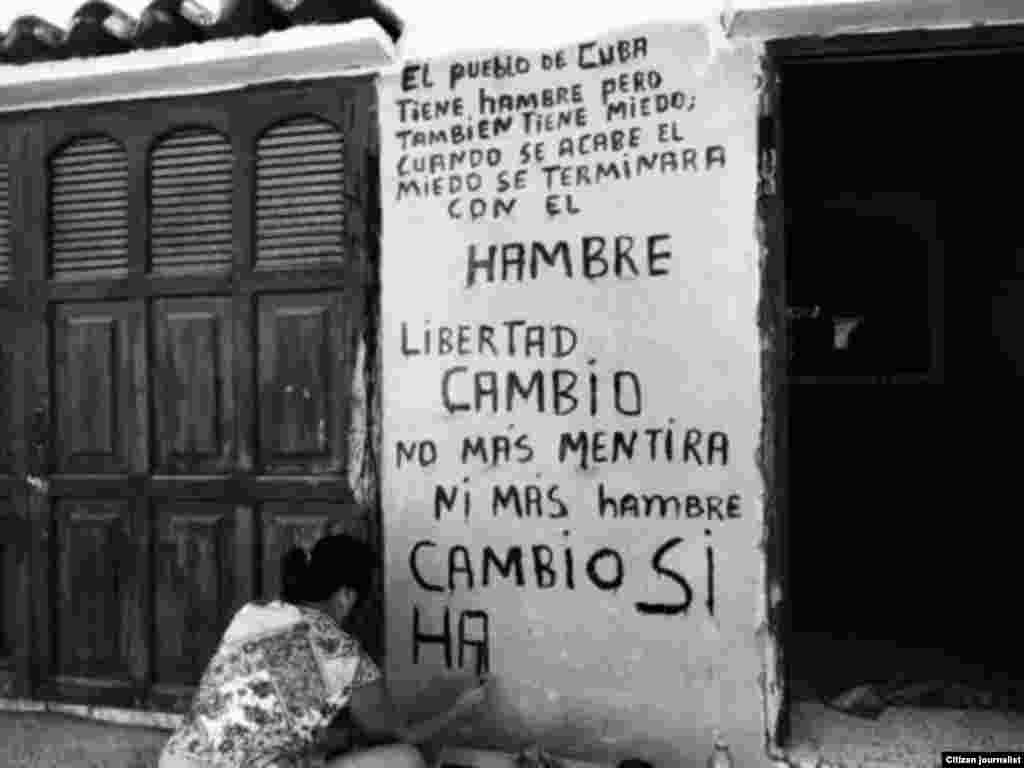 EL PUEBLO DE CUBA
TIENE hAMBRE PERO
TAMBIÉN TIENE MIEDO;
CUANDO SE ACABE EL
MIEDO SE TERMINARA
CON EL
HAMBRE
LiBERTAD
CAMBiO
NO MÁS MENTiRA
Ni MÁS hAmBRE
CAMBiO Si
HA
Citizen journalist